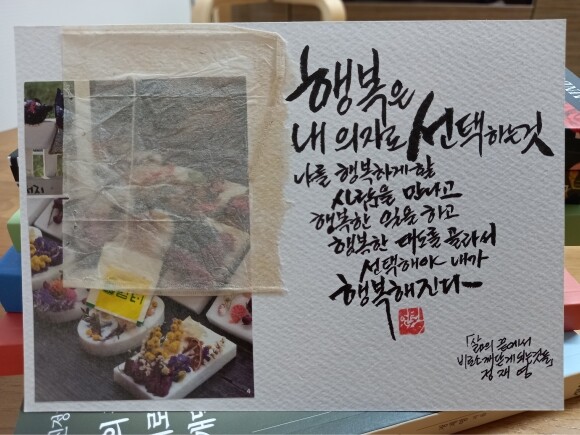 행복은
내 의지로 선택하는것
나를 행복하게 할
사람을 만나고
행복한 일을 하고
행복한 태도를 골라서
선택해야 내가
행복해진다
「삶의 끝에서
비로소 깨닫게 되는것들」
정재영